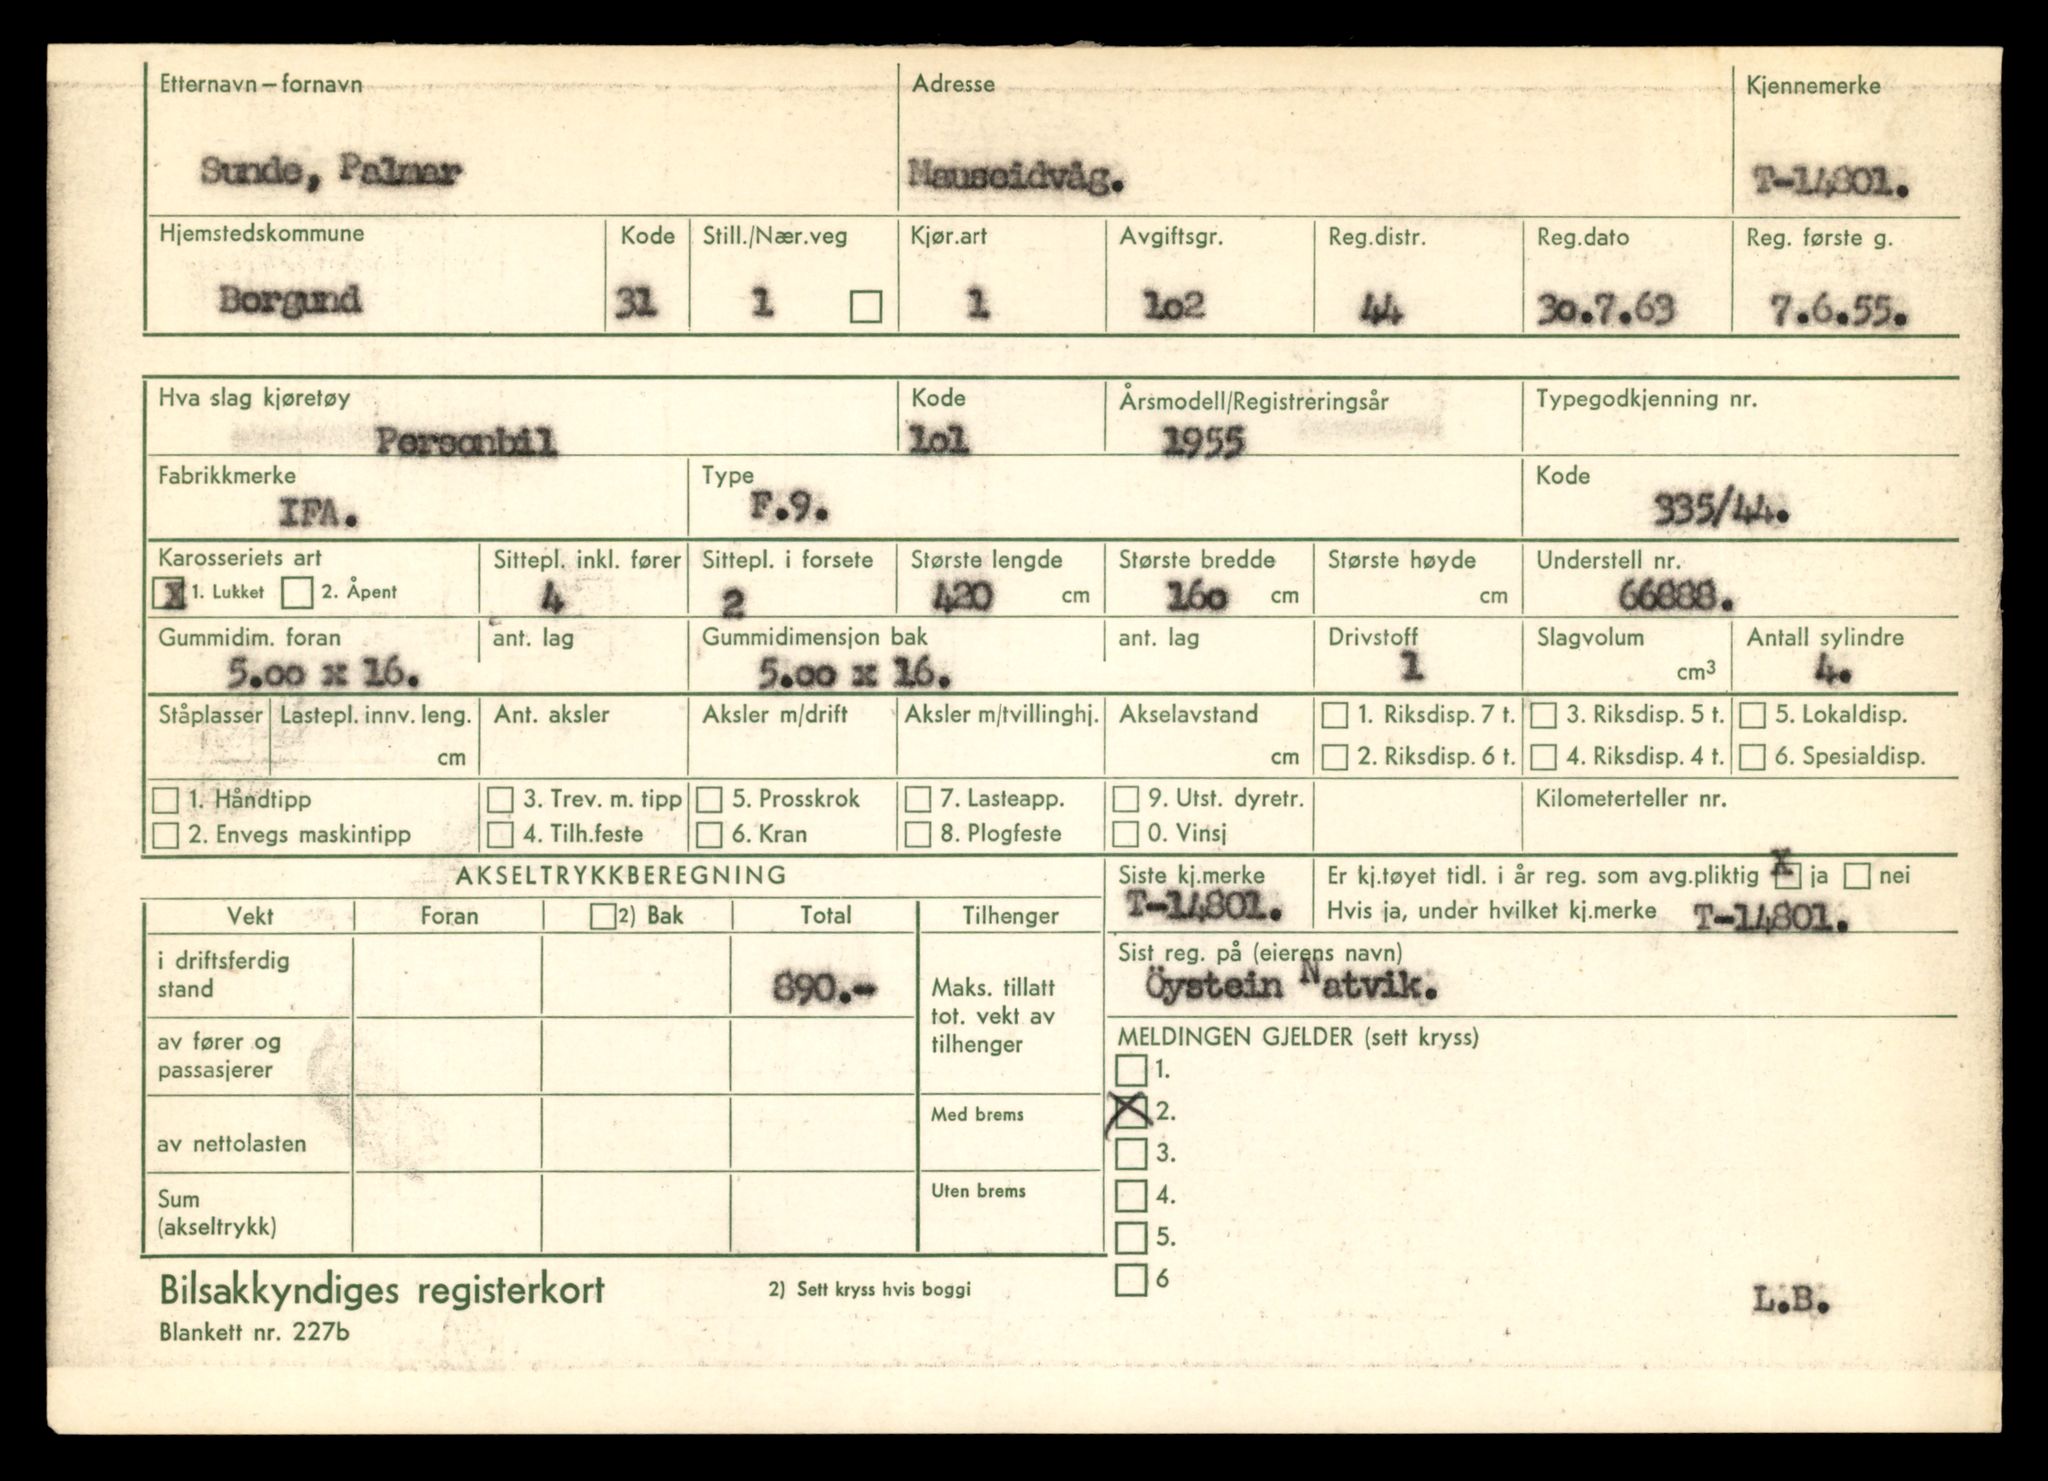 Etternavn – fornavn Adresse Kjennemerke
Sunde, Palmar Mauseidvåg. T-14801.
Hjemstedskommune Kode Still./Nær.veg Kjør.art Avgiftsgr. Reg.distr. Reg.dato Reg. første g.
Borgund 31 1 1 1o2 44 3o.7.63 7.6.55.
Hva slag kjøretøy Kode Årsmodell/Registreringsår Typegodkjenning nr.
Personbil 1o1 1955
Fabrikkmerke Type Kode
IFA. F.9. 335/44.
Karosseriets art Sittepl. inkl. fører Sittepl. i forsete Største lengde Største bredde Største høyde Understell nr.
X 1. Lukket 2. Åpent 4 2 420 cm 16o cm cm 66888.
Gummidim. foran ant. lag Gummidimensjon bak ant. lag Drivstoff Slagvolum Antall sylindre
5.oo x 16. 5.oo x 16. 1 cm3 4.
Ståplasser Lastepl. innv. leng. Ant. aksler Aksler m/drift Aksler m/tvillinghj. Akselavstand 1. Riksdisp. 7 t. 3. Riksdisp. 5 t. 5. Lokaldisp.
cm cm 2. Riksdisp. 6 t. 4. Riksdisp. 4 t. 6. Spesialdisp.
1. Håndtipp 3. Trev. m. tipp 5. Prosskrok 7. Lasteapp. 9. Utst. dyretr. Kilometerteller nr.
2. Envegs maskintipp 4. Tilh.feste 6. Kran 8. Plogfeste 0. Vinsj
AKSELTRYKKBEREGNING Siste kj.merke Er kj.tøyet tidl. i år reg. som avg.pliktig X ja nei
T-14801. Hvis ja, under hvilket kj.merke T-14801.
Vekt Foran 2) Bak Total Tilhenger
Sist reg. på (eierens navn)
Öystein Natvik.
i driftsferdig
stand 890.-
Maks. tillatt
tot. vekt av
tilhenger
av fører og
passasjerer
MELDINGEN GJELDER (sett kryss)
1.
Med brems X 2.
av nettolasten 3.
Uten brems 4.
Sum
(akseltrykk) 5.
6
Bilsakkyndiges registerkort 2) Sett kryss hvis boggi L.B.
Blankett nr. 227b